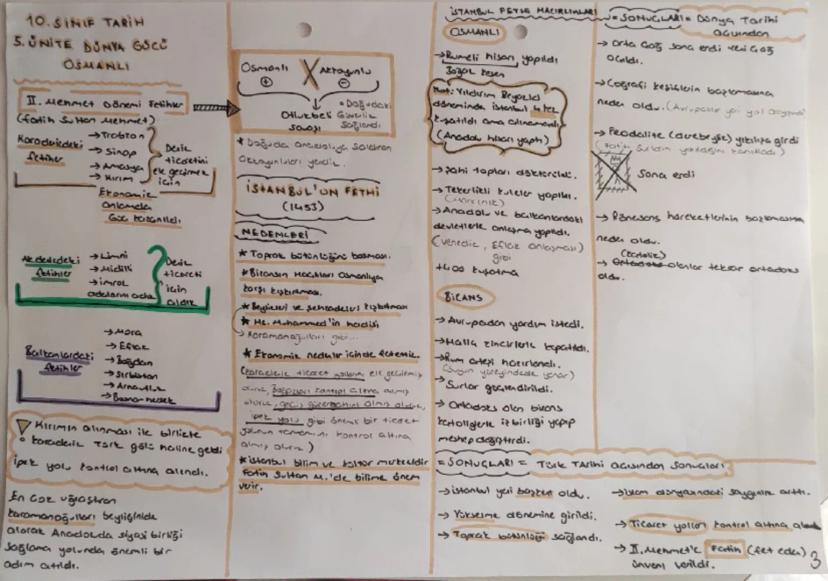 10. SINIF TARİH
5. ÜNİTE DÜNYA GÜCÜ
OSMANLI
II. Mehmet Dönemi Fetihler
(Fatih Sultan Mehmet)
Karadenizdeki
fetihler
→ Trabzon
→ Sinop
→ Amasya
→ Kırım
Deniz
ticaretini
ele geçirmek
için
Ekonomik
anlamda
Güç kazanıldı
Akdenizdeki
fetihler
→ Limni
→ Midilli
→ İmroz
adalarını aldı
Deniz
ticareti
için
aldık
Balkanlardaki
fetihler
→ Mora
→ Eflak
→ Boğdan
→ Sırbistan
→ Arnavutluk
→ Bosna-Hersek
Kırımın alınması ile birlikte
karadeniz Türk gölü haline geldi
ipek yolu kontrol altına alındı.
En çok uğraştıran
karamanoğulları beyliğinide
alarak Anadoluda siyasi birliği
sağlama yolunda önemli bir
adım atıldı.
Osmanlı X Akkoyunlu
+ -
Otlukbeli
savaşı
• Doğudaki
Güvenlik
Sağlandı
* Doğuda Anadoluya saldıran
Akkoyunları yendik.
İSTANBUL'UN FETHİ
(1453)
NEDENLERİ
* Toprak bütünlüğünü bozması.
* Bizansın Haçlıları Osmanlıya
karşı kışkırtması.
* Beylikleri ve şehzadeleri kışkırtması
* Hz. Muhammed'in hadisi
→ Karamanoğulları gibi...
* Ekonomik nedenler içinde fethetmek.
(Karadeniz ticaret yolların ele geçirilmiş
olunur, boğazları kontrol altına almış
olunur,
ipek yolu gibi önemli bir ticaret
yolunun tamamını kontrol altına
almış olunur)
* İstanbul bilim ve kültür merkezidir
Fatih Sultan M.'de bilime önem
verir.
İSTANBUL FETHİ HAZIRLIKLARI
OSMANLI
→ Rumeli hisarı yapıldı
Boğaz kesen
Not: Yıldırım Beyazid
döneminde İstanbul 4 kez
kuşatıldı ama alınamadı
(Anadolu hisarı yaptı)
→ Şahi topları döktürüldü.
→ Tekerlekli kuleler yapıldı.
→ Anadolu ve balkanlardaki
devletlerle anlaşma yapıldı.
(Venedik, Eflak anlaşması)
gibi
+400 kuşatma
BİZANS
→ Avrupadan yardım istedi.
→ Haliç zincirlerle kapatıldı.
→ Rum ateşi hazırlandı.
(Suyun yüzeyindede yanar)
→ Surlar güçlendirildi.
→ Ortodoks olan bizans
katoliklerle iş birliği yapıp
mezhep değiştirdi.
= SONUÇLARI = Dünya Tarihi
Açısından
→ Orta Çağ sona erdi Yeni Çağ
açıldı.
→ Coğrafi keşiflerin başlamasına
neden oldu.
→ Feodalite (derebeylik) yıkılışa girdi
Sona erdi
→ Rönesans hareketlerinin başlamasına
neden oldu.
(katolik)
→ Ortodoks olanlar tekrar ortodoks
oldu.
= SONUÇLARI = Türk Tarihi açısından Sonuçları
→ İstanbul yeni başkent oldu.
→ Yükselme dönemine girildi.
→ Toprak bütünlüğü sağlandı.
→ İslam dünyasındaki saygınlık arttı.
→ Ticaret yolları kontrol altına alındı
→ II. Mehmet'e Fatih (fet eden)
ünvanı verildi.
3